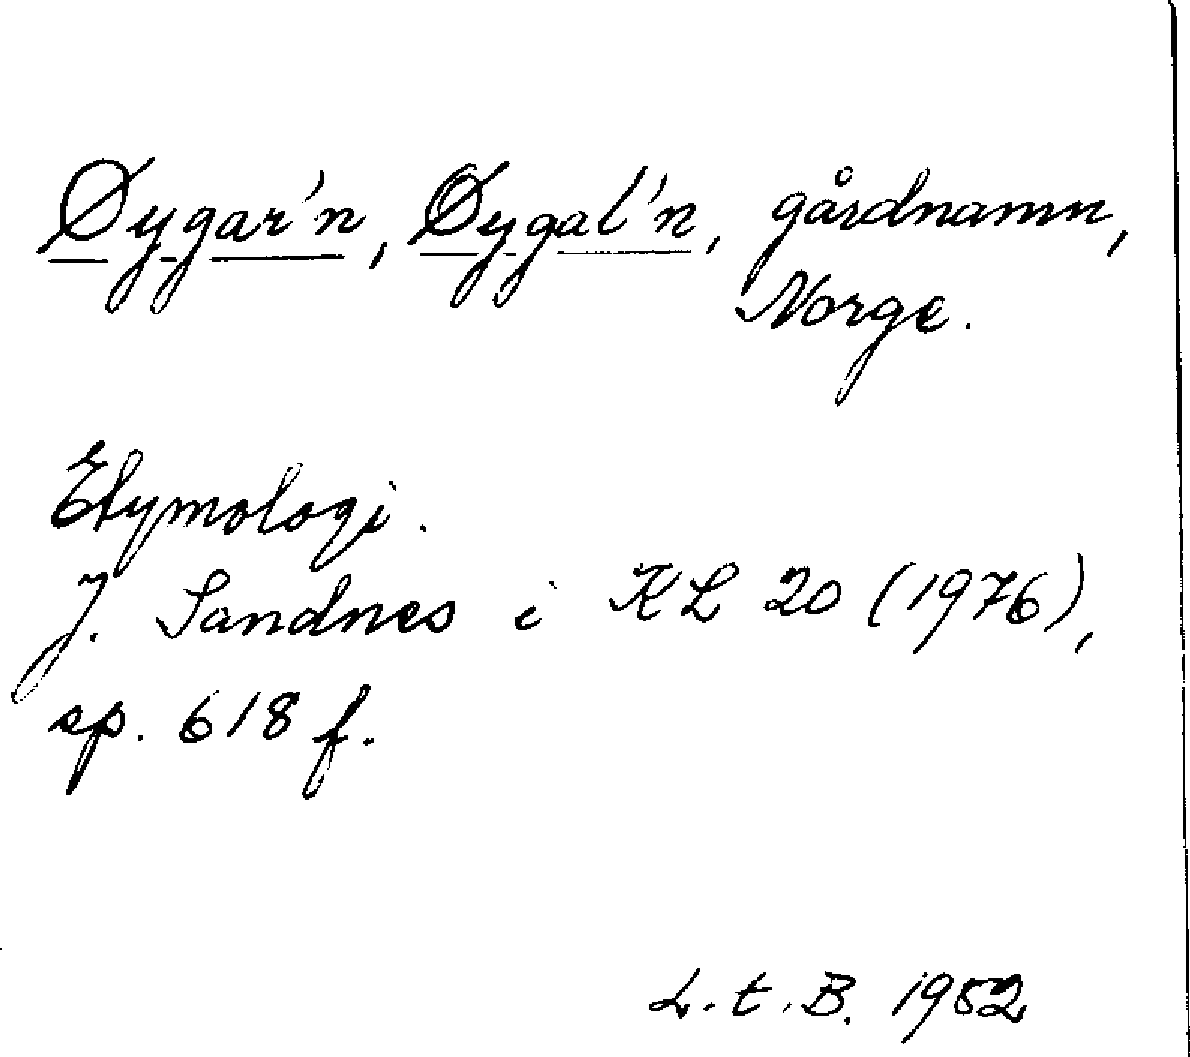 Øygar'n, Øygal'n, gårdnamn,
Norge.
Etymologi.
J. Sandnes i KL 20 (1976),
sp. 618 f.
L.t.B. 1982